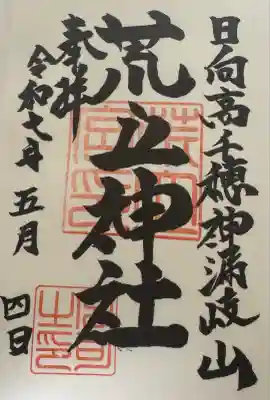 日向高千穂神漏岐山
荒立神社
奉拝
令和七年 五月 四日